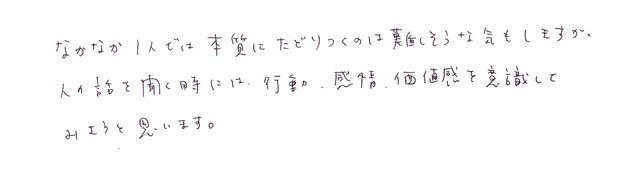 なかなか1人では本質にたどりつくのは難しそうな気もしますが、
人の話を聞く時には、行動、感情、価値感を意識して
みようと思います。